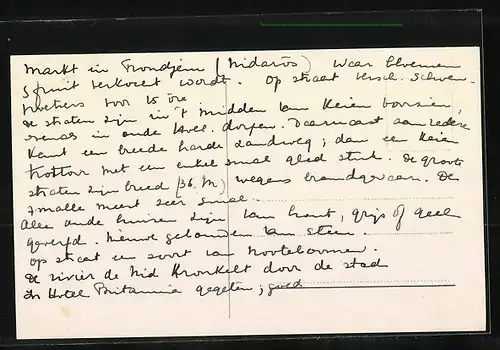 Markt in Trondjem (Nidarōs) waar bloemen
& fruit verkocht wordt. Op straat versch. schoen-
poetsers voor 15 öre
de straten zijn in 't midden van keien voorzien,
evenals in oude Holl. dorpen. Daarnaast aan iedere
kant een breede harde zandweg; dan een keien
trottoir met een enkel smal glad stuk. De groote
straten zijn breed (36 M.) wegens brandgevaar. De
smalle meest zeer smal.
Alle oude huizen zijn van hout, grijs of geel
geverfd. Nieuwe gebouwen van steen.
Op straat een soort van nooteboomen.
De rivier de Nid kronkelt door de stad
In Hotel Britannia gegeten; goed